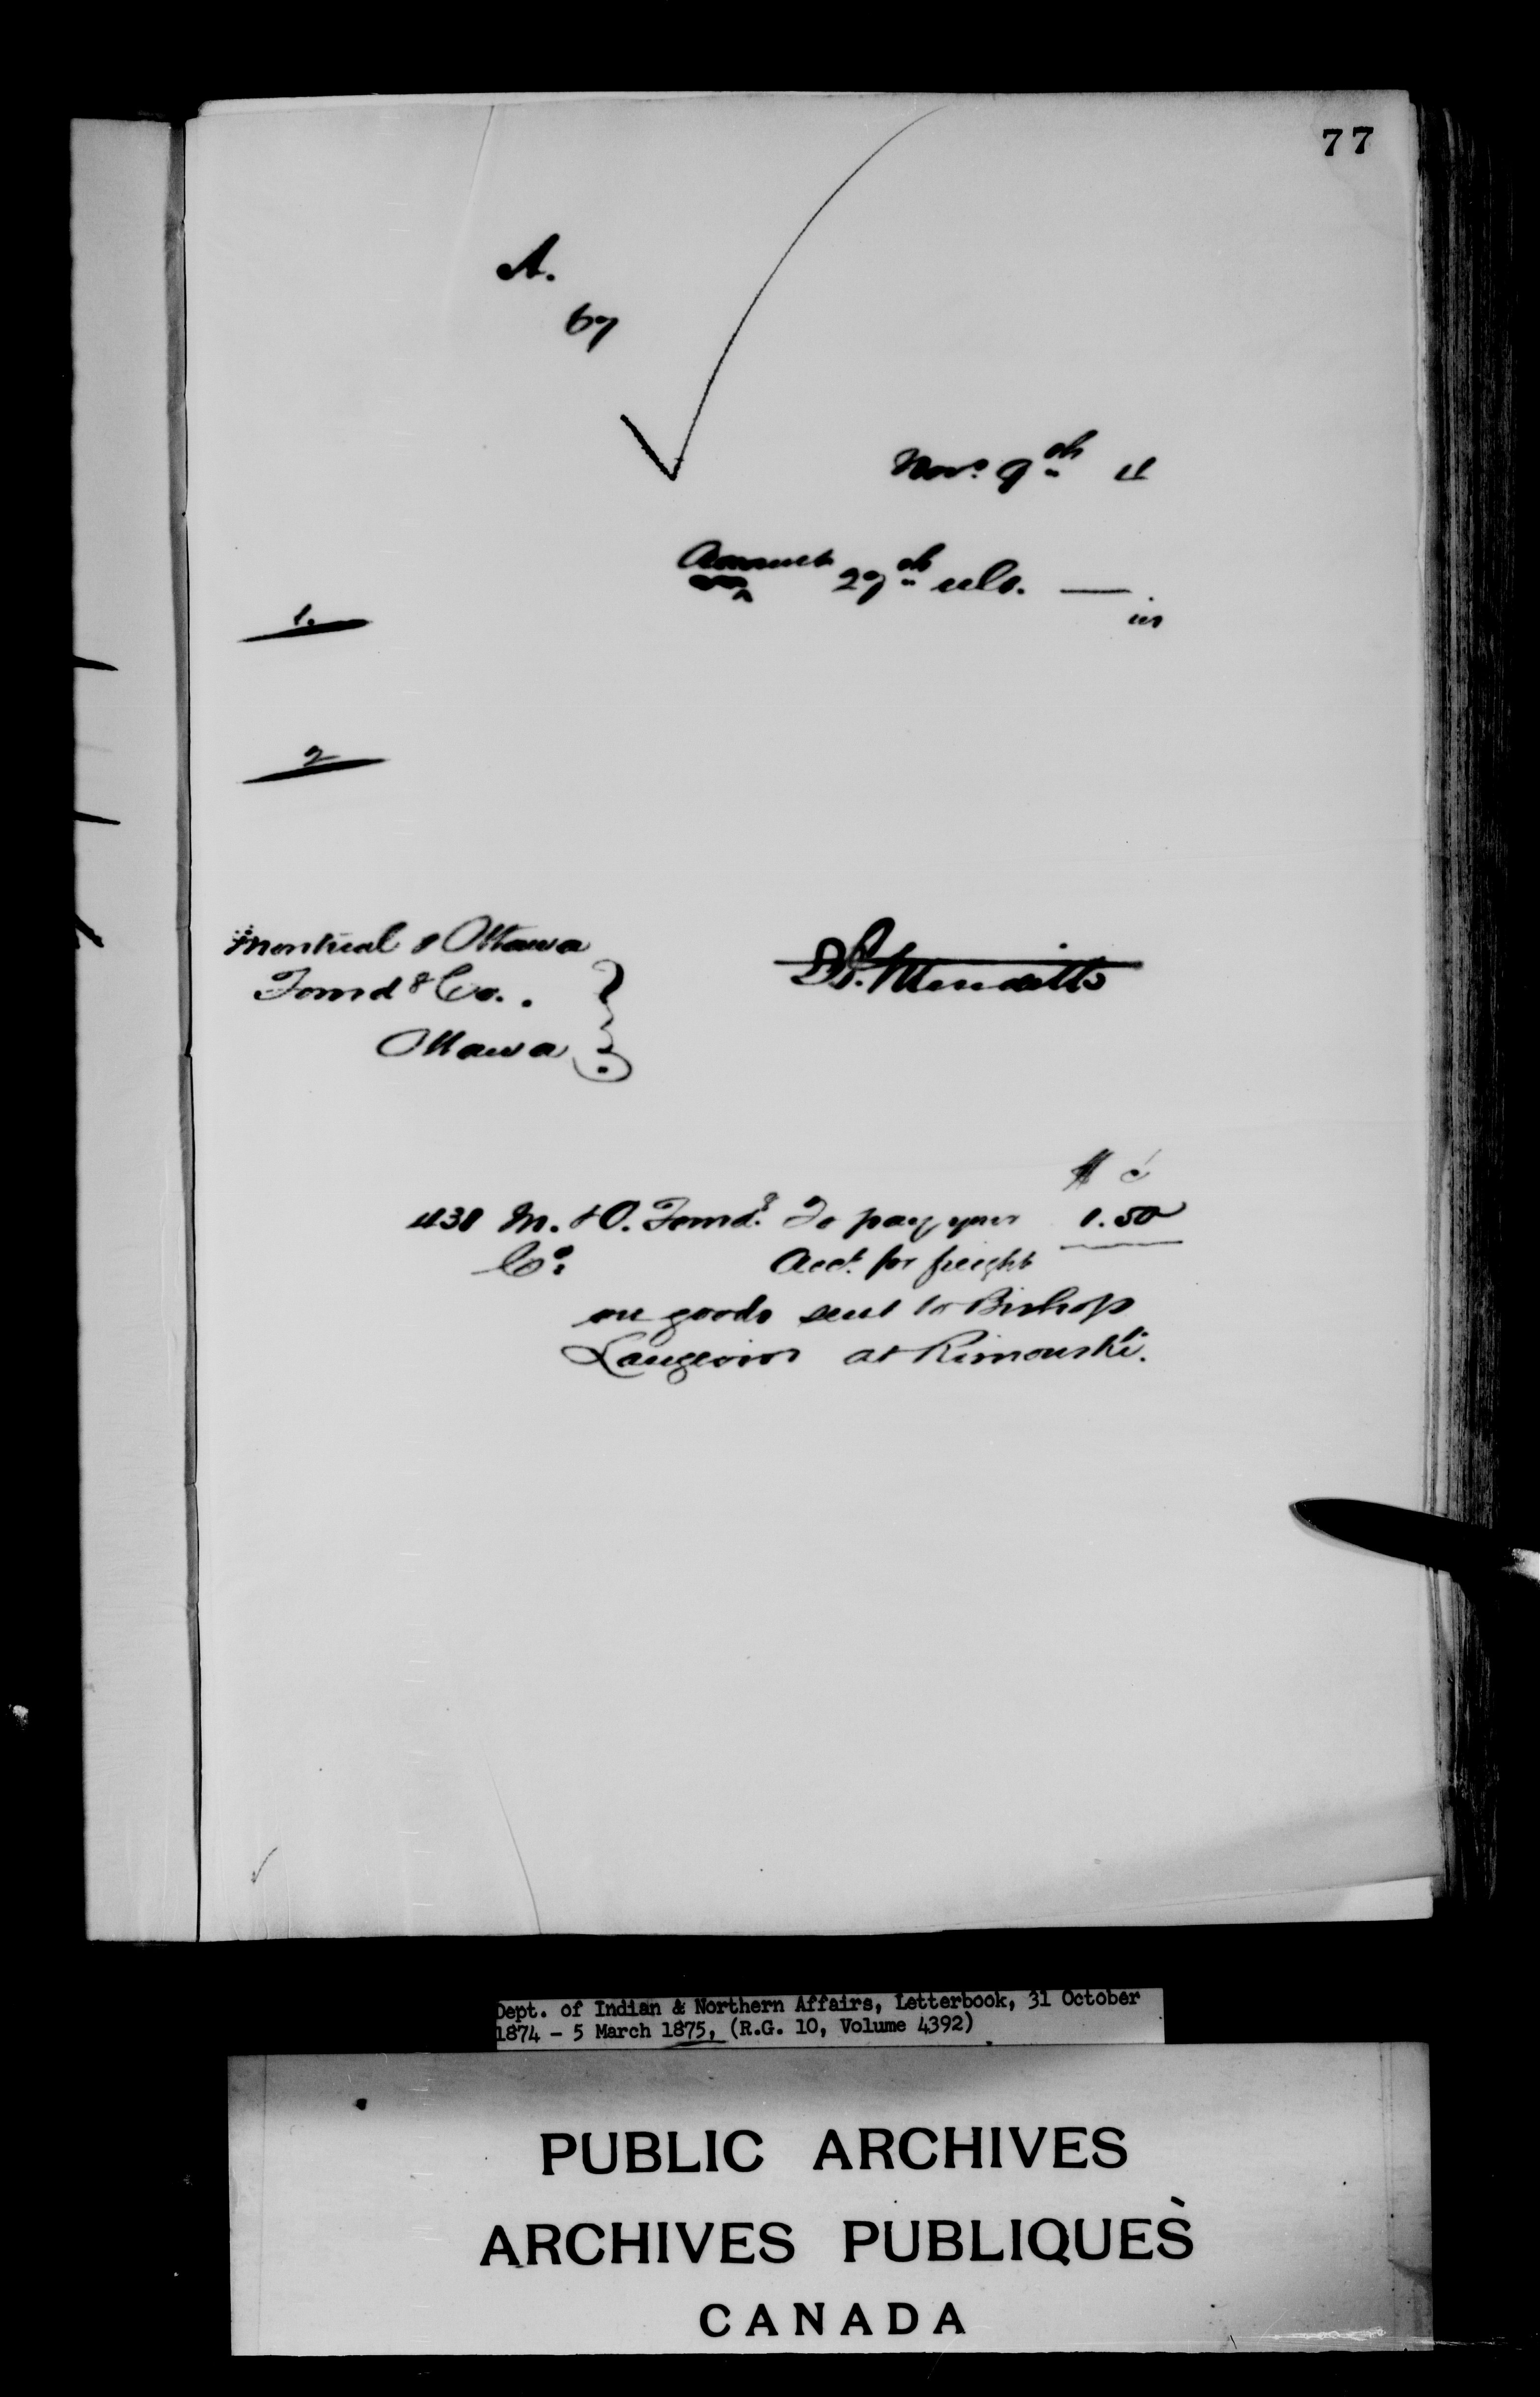 77
A.
67
Nov. 9th 4
Account
27th ulto. —
in
1.
2
Montreal & Ottawa
Forwd & Co.
Ottawa
E. A. Meredith
$ c
438 M. & O. Forwd.g To pay your 1.50
Co: Acct. for freight
on goods sent to Bishop
Langevin at Rimouski.
Dept. of Indian & Northern Affairs, Letterbook, 31 October
1874 - 5 March 1875, (R.G. 10, Volume 4392)
PUBLIC ARCHIVES
ARCHIVES PUBLIQUES
CANADA